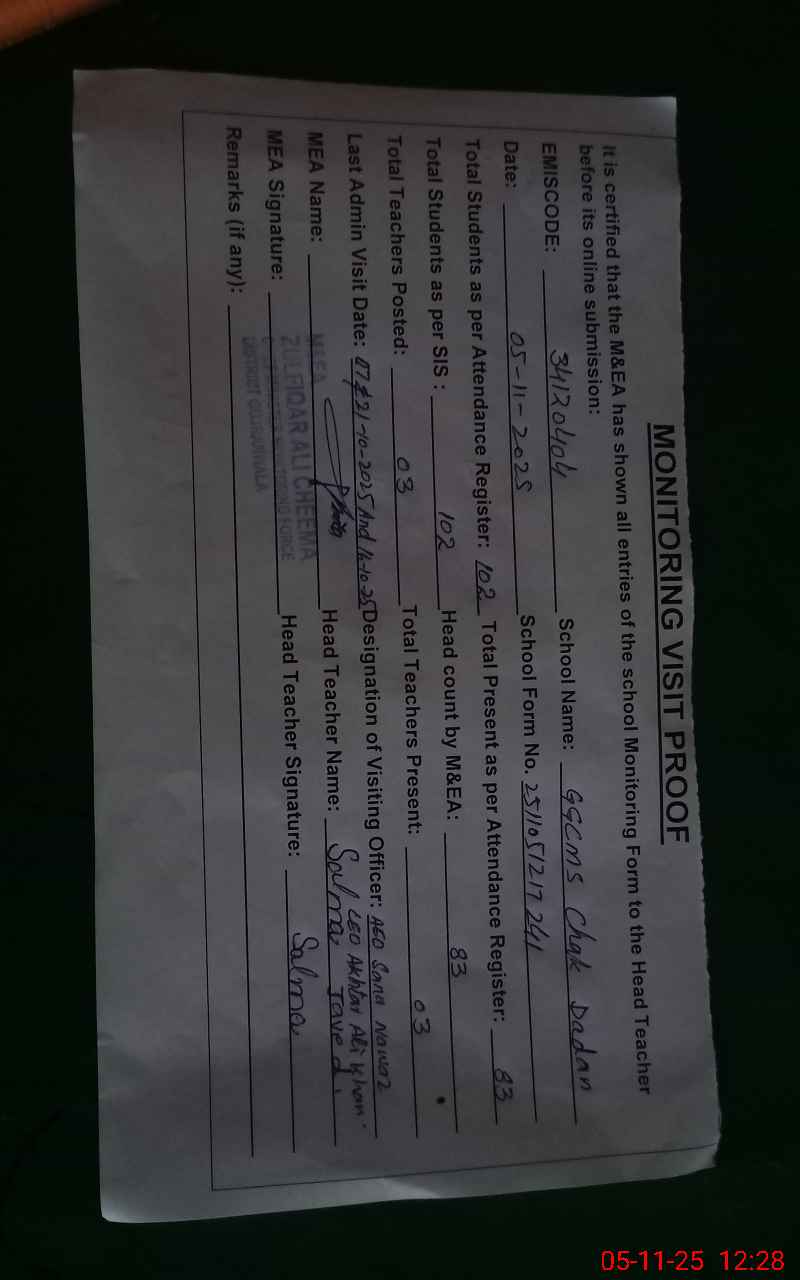 MONITORING VISIT PROOF
It is certified that the M&EA has shown all entries of the school Monitoring Form to the Head Teacher
before its online submission:
EMISCODE: 34120404 School Name: GGCMS Chak Dadan
Date: 05-11-2025 School Form No. 2511051217241
Total Students as per Attendance Register: 102 Total Present as per Attendance Register: 83
Total Students as per SIS : 102 Head count by M&EA: 83
Total Teachers Posted: 03 Total Teachers Present: 03
Last Admin Visit Date: 21-10-2025 And 16-10-25 Designation of Visiting Officer: AEO Sana Nawaz
CEO Akhtar Ali Khan.
MEA Name: Head Teacher Name: Salma Javed.
MEA Signature: Head Teacher Signature: Salma
Remarks (if any):
M&EA
ZULFIQAR ALI CHEEMA
MONITORING FORCE
DISTRICT GUJRANWALA
05-11-25 12:28